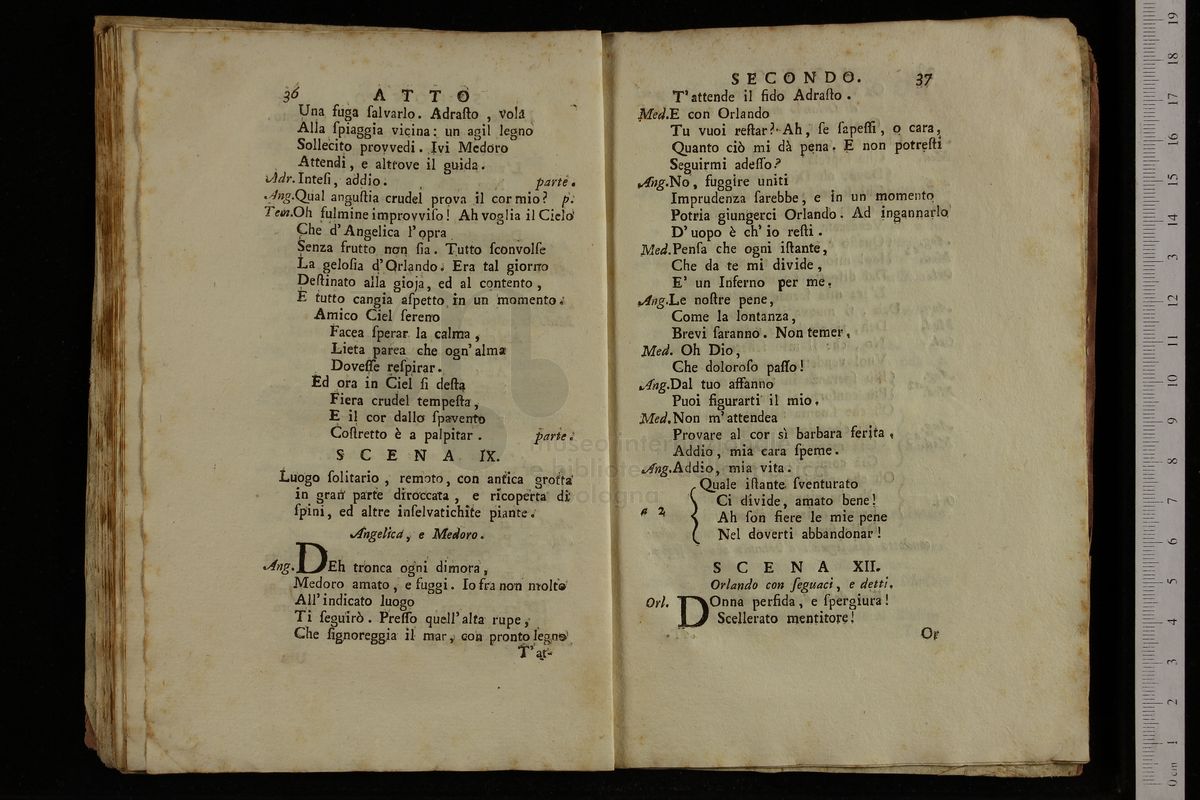 36 ATTO
Una fuga ſalvarlo. Adraſto , vola
Alla ſpiaggia vicina: un agil legno
Sollecito provvedi. Ivi Medoro
Attendi, e altrove il guida.
Adr. Inteſi, addio. parte.
Ang. Qual anguſtia crudel prova il cor mio? p.
Tem. Oh fulmine improvviſo! Ah voglia il Cielo
Che d'Angelica l'opra
Senza frutto non ſia. Tutto ſconvolſe
La geloſia d'Orlando. Era tal giorno
Deſtinato alla gioja, ed al contento,
E tutto cangia aſpetto in un momento.
Amico Ciel ſereno
Facea ſperar la calma,
Lieta parea che ogn'alma
Doveſſe reſpirar.
Ed ora in Ciel ſi deſta
Fiera crudel tempeſta,
E il cor dallo ſpavento
Coſtretto è a palpitar. parte.
SCENA IX.
Luogo ſolitario, remoto, con antica grotta
in gran parte diroccata, e ricoperta di
ſpini, ed altre inſelvatichite piante.
Angelica, e Medoro.
Ang. DEh tronca ogni dimora,
Medoro amato, e fuggi. Io fra non molto
All'indicato luogo
Ti ſeguirò. Preſſo quell'alta rupe,
Che ſignoreggia il mar, con pronto legno
T'at-
SECONDO. 37
T'attende il fido Adraſto.
Med. E con Orlando
Tu vuoi reſtar? Ah, ſe ſapeſſi, o cara,
Quanto ciò mi dà pena. E non potreſti
Seguirmi adeſſo?
Ang. No, fuggire uniti
Imprudenza ſarebbe, e in un momento
Potria giungerci Orlando. Ad ingannarlo
D'uopo è ch'io reſti.
Med. Penſa che ogni iſtante,
Che da te mi divide,
E' un Inferno per me.
Ang. Le noſtre pene,
Come la lontanza,
Brevi ſaranno. Non temer.
Med. Oh Dio,
Che doloroſo paſſo!
Ang. Dal tuo affanno
Puoi figurarti il mio.
Med. Non m'attendea
Provare al cor sì barbara ferita,
Addio, mia cara ſpeme.
Ang. Addio, mia vita.
Quale iſtante ſventurato
Ci divide, amato bene!
a 2 Ah ſon fiere le mie pene
Nel doverti abbandonar!
SCENA XII.
Orlando con ſeguaci, e detti.
Orl. DOnna perfida, e ſpergiura!
Scellerato mentitore!
Or